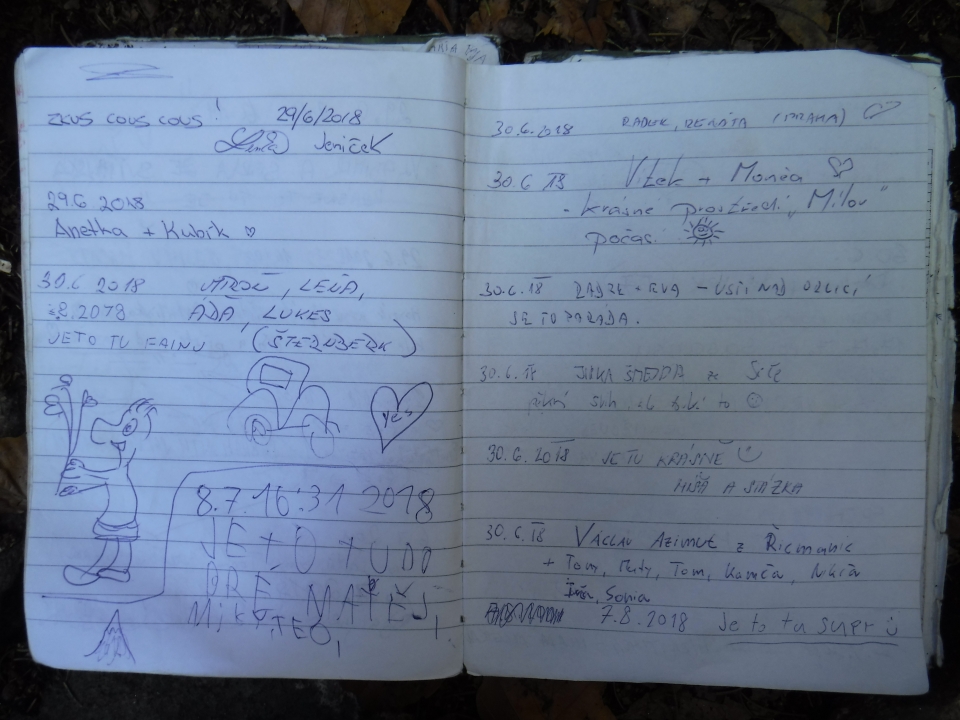 ZKUS COUS COUS!
29/6/2018
Lenča Jeníček
29.6 2018
Anetka + Kubík ♡
30.6 2018 LEŇA,
ÁĎA, LUKEŠ
JE TO TU FAJNU (ŠTERNBERK)
YES
8.7.16:31 2018
JE TO TU DO
BRÉ MATĚJ,
MIKY, TEO,
30.6.2018 RADEK, RENÁTA (PRAHA) ♡
30.6 18 Vítek + Monča ♡
- krásné prostředí, "Milov"
počasí
30.6.18 + EVA - ÚSTÍ NAD ORLICÍ
JE TO PARÁDA.
30.6.18 JIRKA ze
to ☺
30.6.2018 JE TU KRÁSNĚ ☺
A
30.6.18 VÁCLAV AZIMUT z Řicmanic
+ Tom, Tom, Kamča,
Sonia
7.8.2018 Je to tu supr ☺